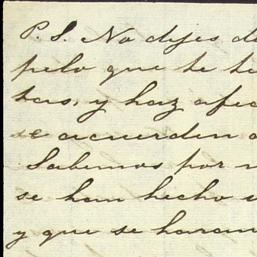 P. S. No dejes de
pelo que te
y haz
se acuerden
Sabemos por
se han hecho
y que se haran